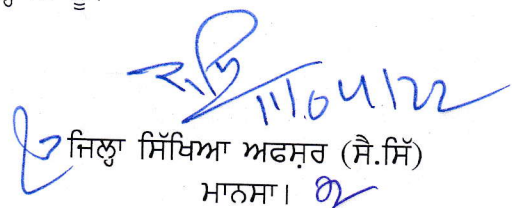 11/04/22
ਜਿਲ੍ਹਾ ਸਿੱਖਿਆ ਅਫਸ਼ਰ (ਸੈ.ਸਿੱ)
ਮਾਨਸਾ।